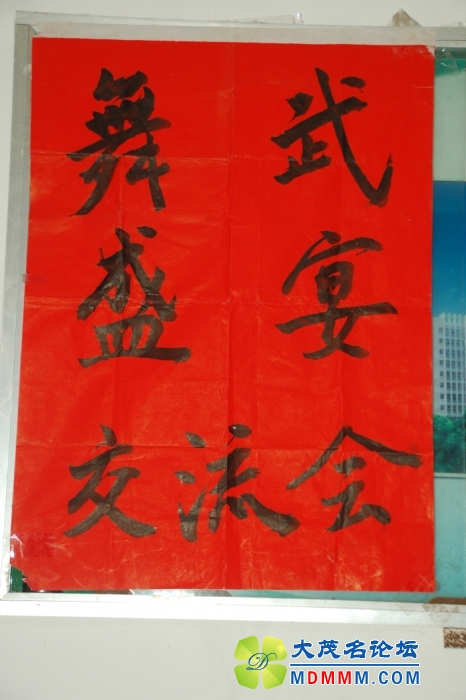 舞 武
盛 宴
交流会
大茂名论坛
MDMMM.COM